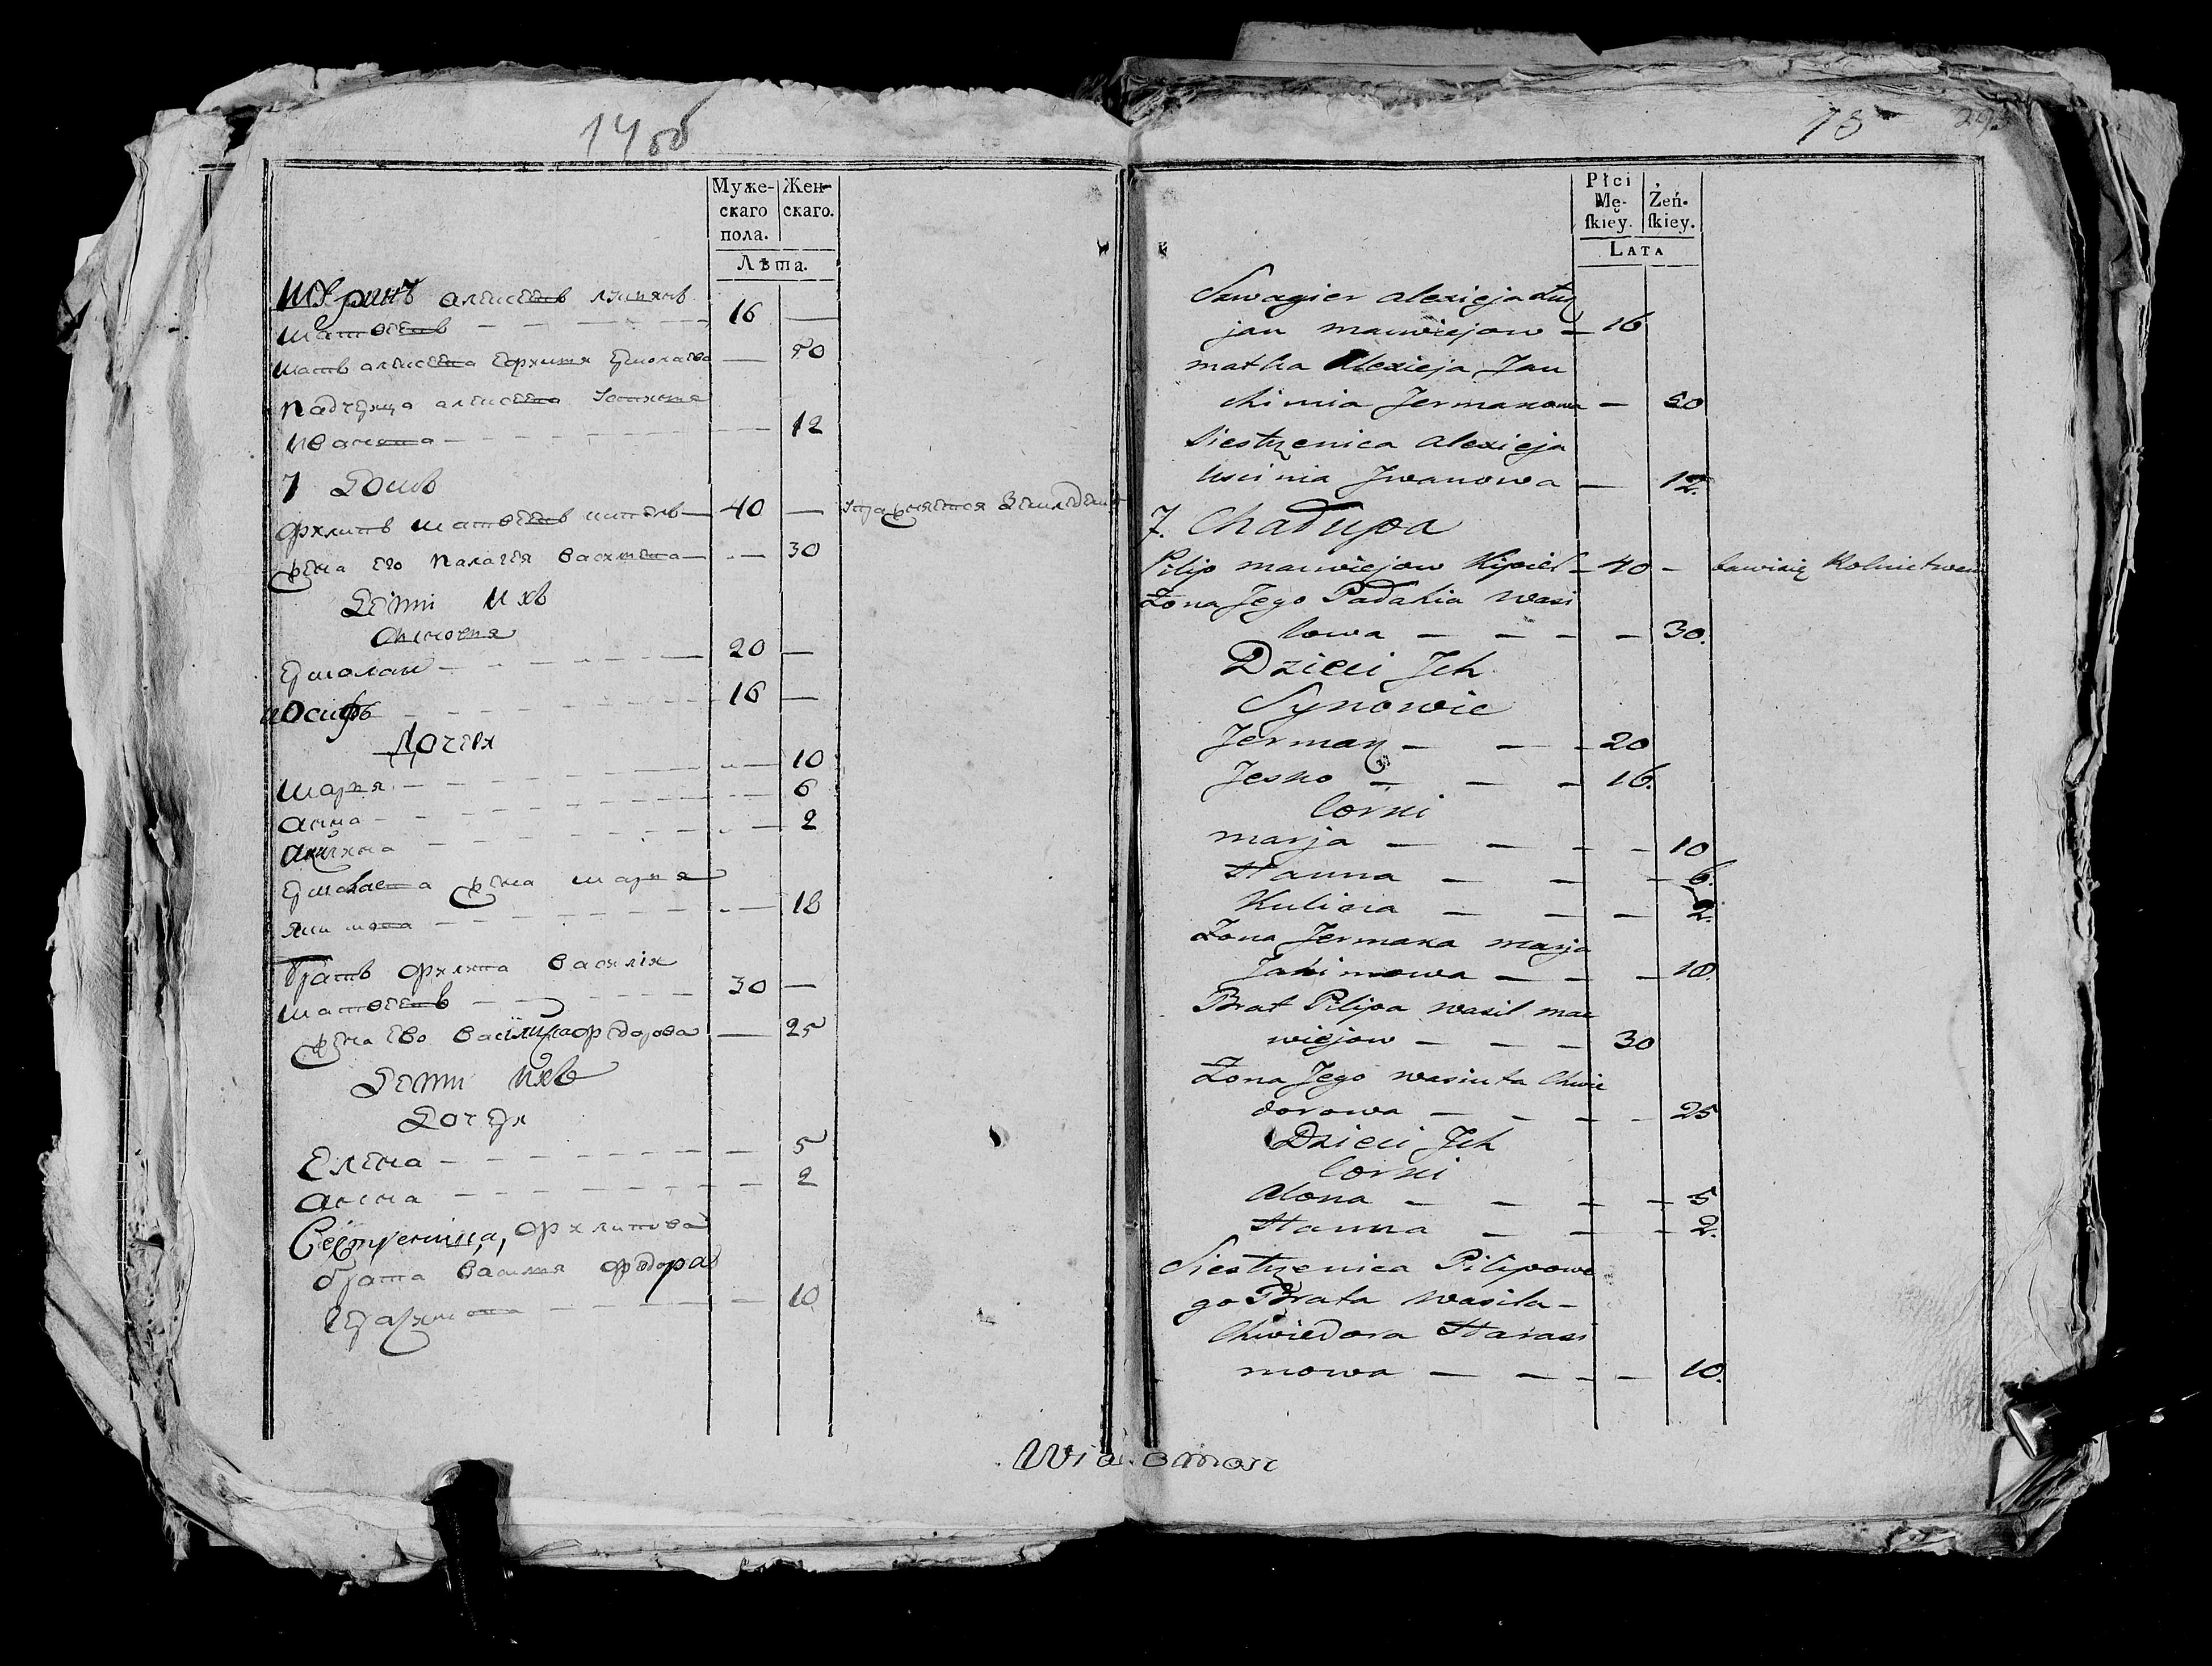 14 об
Муже-
скаго
пола.
Жен-
скаго.
Лѣта.
Шуринъ алексеевъ лукянъ
матвеевъ — — — 16 —
мать алексеева Ермолаева — 50
падчерица алексеева Устинья
Иванова — — — 12
7 Домъ
Филипъ матвеевъ — 40 — упражняется
жена его палагея василева — — 30
Дети ихъ
Сыновья
Ермолаи — — — 20 —
иОсифъ — — — 16 —
Дочеря
марья — — — 10
анна — — — 6
акилина — — — 2
Ермолаева жена марья
якимова — — — 18
братъ филипа василеи
матвеевъ — — — 30 —
жена ево федорова — 25
Дети ихъ
Дочеря
Елена — — — 5
анна — — — 2
Сестреница, филипова
брата василя федора
Герасимова — — — 10
75
Płci
Mę-
ſkiey.
Żeń-
ſkiey.
LATA
Szwagier alexieja Łuq
jan maciejow — 16
matka Alexieja Jau
chimia Jermakowa — 50
Siestrzenica alexieja
Uscinia Jwanowa — 12.
7. Chałupa
Pilip maciejow Kisiel — 40 — bawisię Rolnictwem
Żona Jego Pałahia wasi
lowa — — — — 30.
Dzieci Jch
Synowie
Jermak — — — 20
Jesko — — — 16.
Corki
marja — — — — 10
Hanna — — — 6.
Kulina — — — 2.
Żona Jermaka marja
Jakimowa — — — 18.
Brat Pilipa wasil mac
wiejow — — — 30
Żona Jego wasiuta Chwie
dorowa — — — — 25
Dzieci Jch
Corki
Alona — — — — 5
Hanna — — — 2.
Siestrzenica Pilipowe
go Brata wasila —
Chwiedora Harasi
mowa — — — — 10.